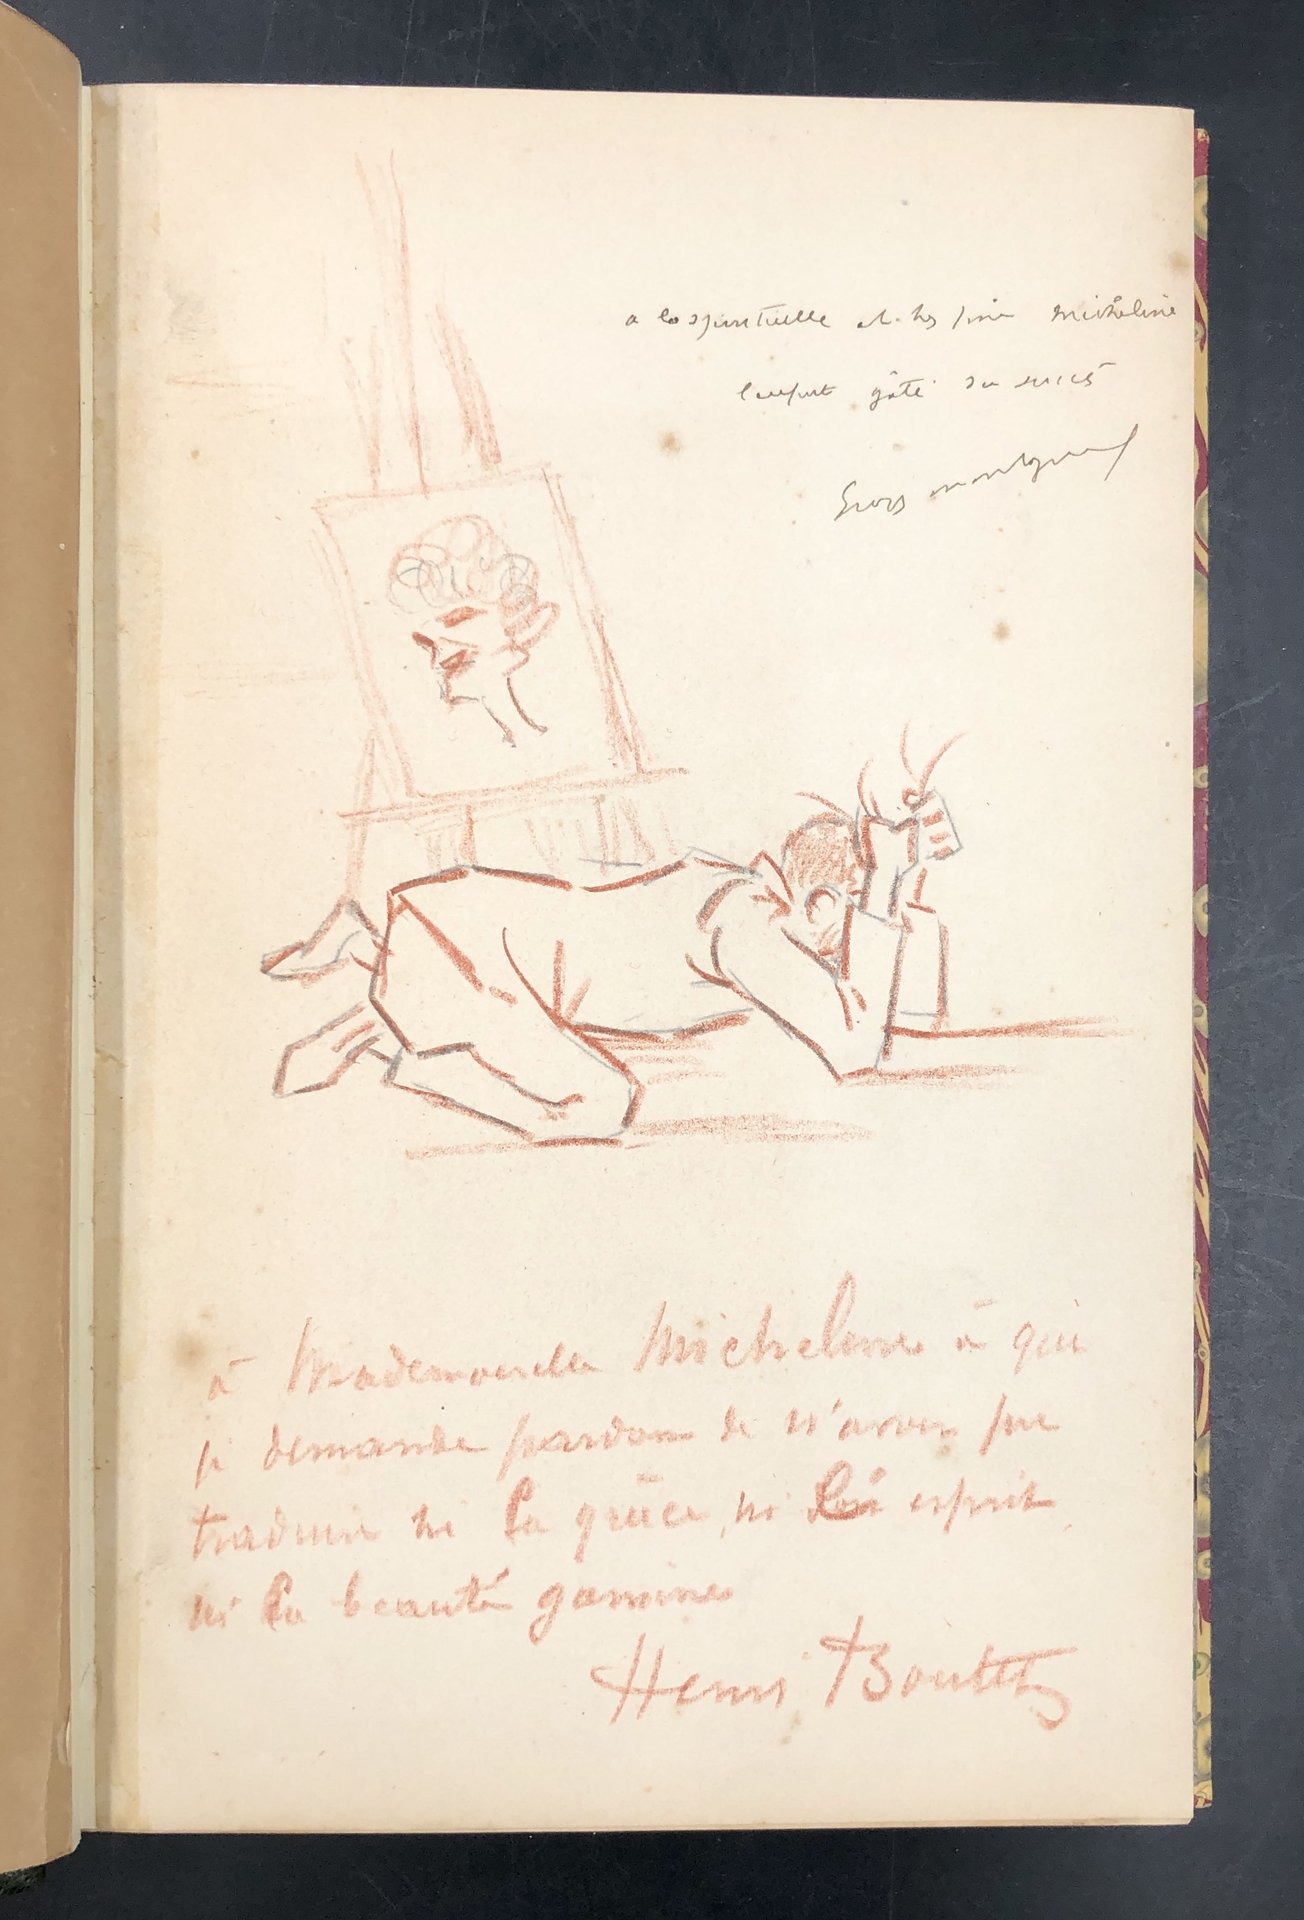 a la spirituelle et très fine Micheline
l'enfant gâté du succès
Georges Montorgueil
à Mademoiselle Micheline à qui
je demande pardon de n'avoir pu
traduire ni la grâce, ni l'esprit
ni la beauté gamine
Henri Boutet